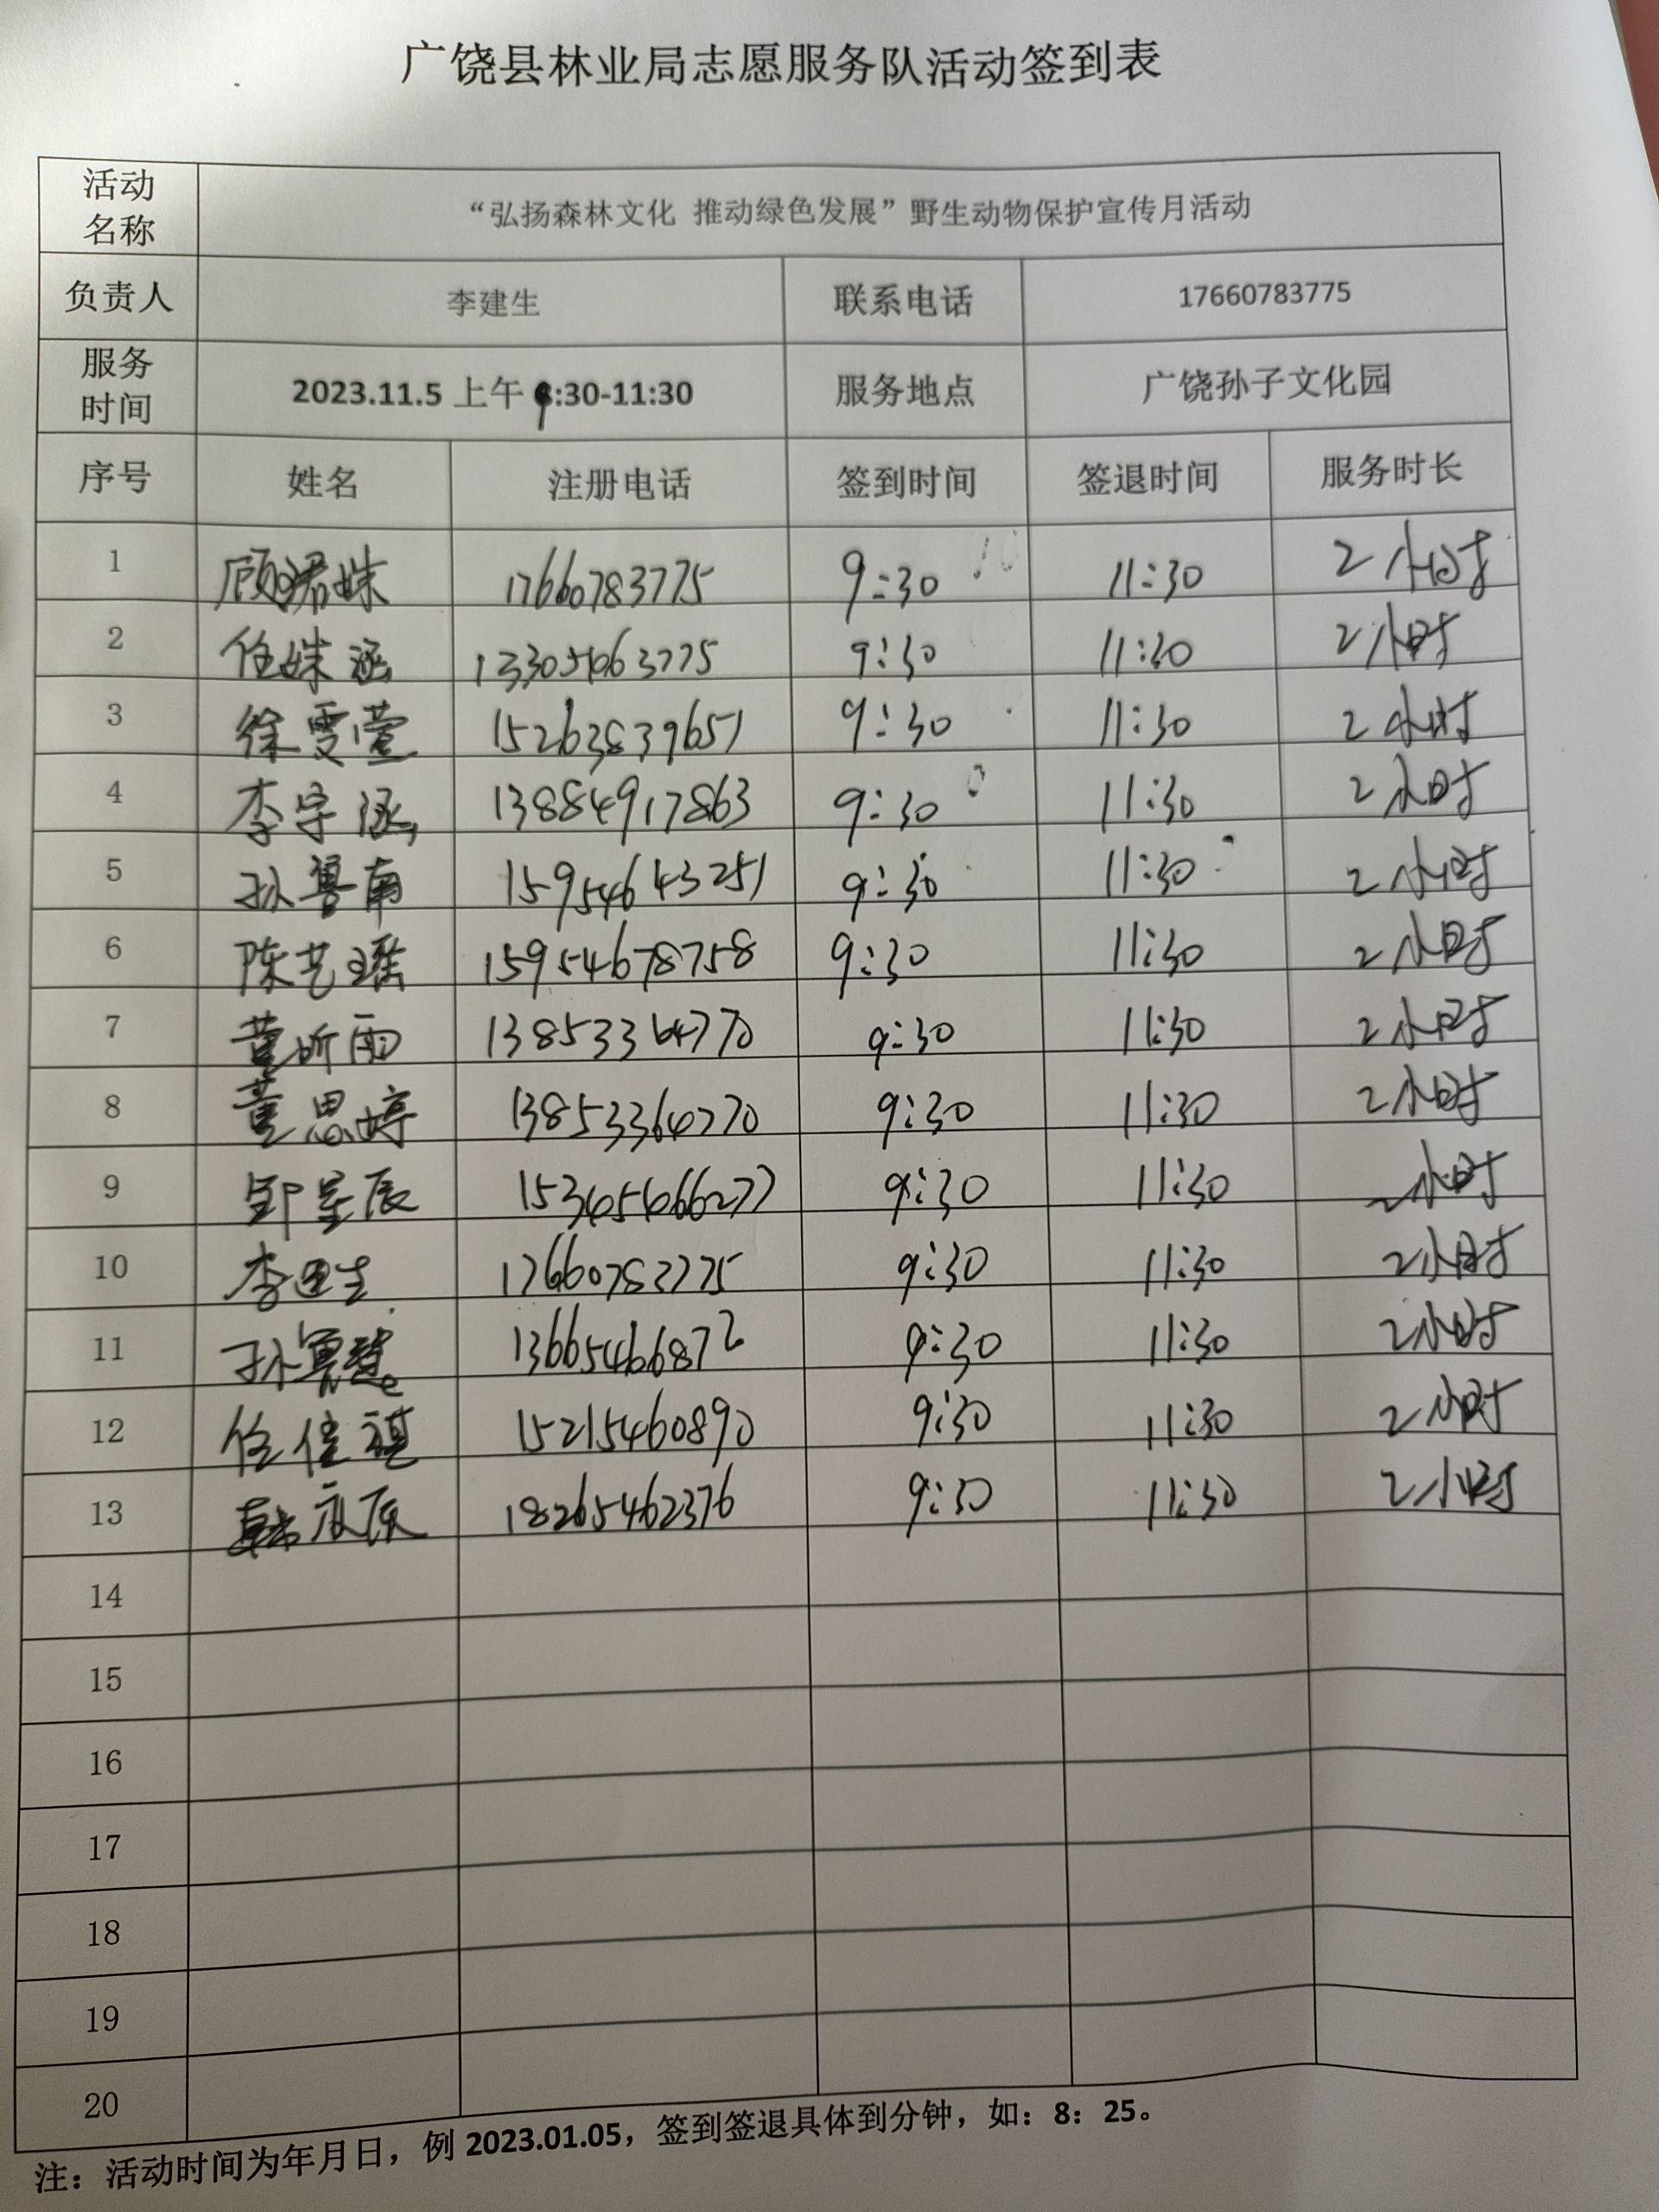 广饶县林业局志愿服务队活动签到表
活动名称 “弘扬森林文化 推动绿色发展”野生动物保护宣传月活动
负责人 李建生 联系电话 17660783775
服务时间 2023.11.5 上午 9:30-11:30 服务地点 广饶孙子文化园
序号 姓名 注册电话 签到时间 签退时间 服务时长
1 顾珺姝 17660783775 9:30 11:30 2小时
2 任姝涵 13305463775 9:30 11:30 2小时
3 徐雯萱 15263839651 9:30 11:30 2小时
4 李宇涵 13884917863 9:30 11:30 2小时
5 孙鲁南 15954643251 9:30 11:30 2小时
6 陈艺瑶 15954678758 9:30 11:30 2小时
7 董昕雨 13853364770 9:30 11:30 2小时
8 董思婷 13853364770 9:30 11:30 2小时
9 邹星辰 9:30 11:30 2小时
10 李建生 17660783775 9:30 11:30 2小时
11 孙 13665466872 9:30 11:30 2小时
12 任佳祺 15215460890 9:30 11:30 2小时
13 韩 18265462376 9:30 11:30 2小时
14
15
16
17
18
19
20
注：活动时间为年月日，例 2023.01.05，签到签退具体到分钟，如：8：25。